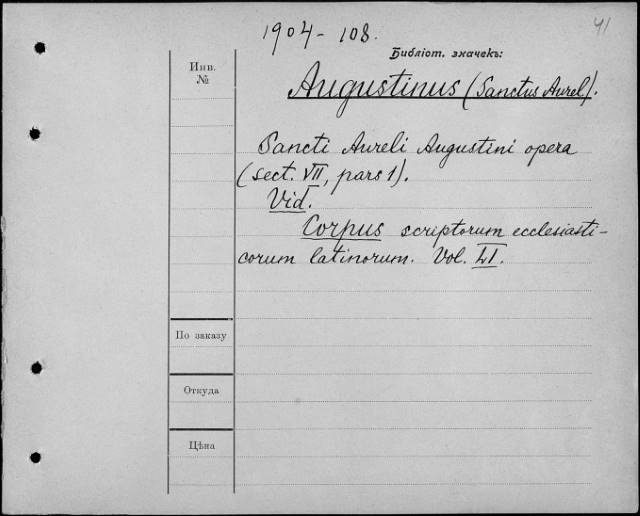 1904-108.
41
Библіот. значекъ:
Инв.
№
Augustinus (Sanctus Aurel).
Sancti Aureli Augustini opera
(sect. VII, pars 1).
Vid.
Corpus scriptorum ecclesiasti-
corum latinorum. Vol. LI.
По заказу
Откуда
Цѣна